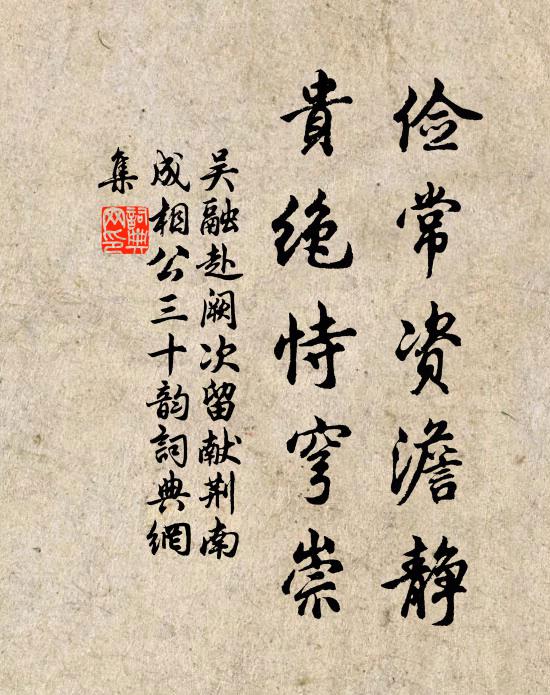 俭常资澹静
貴绝恃穹崇
吴融赴阙次留献荆南
成相公三十韵詞典網
集
詞典网印